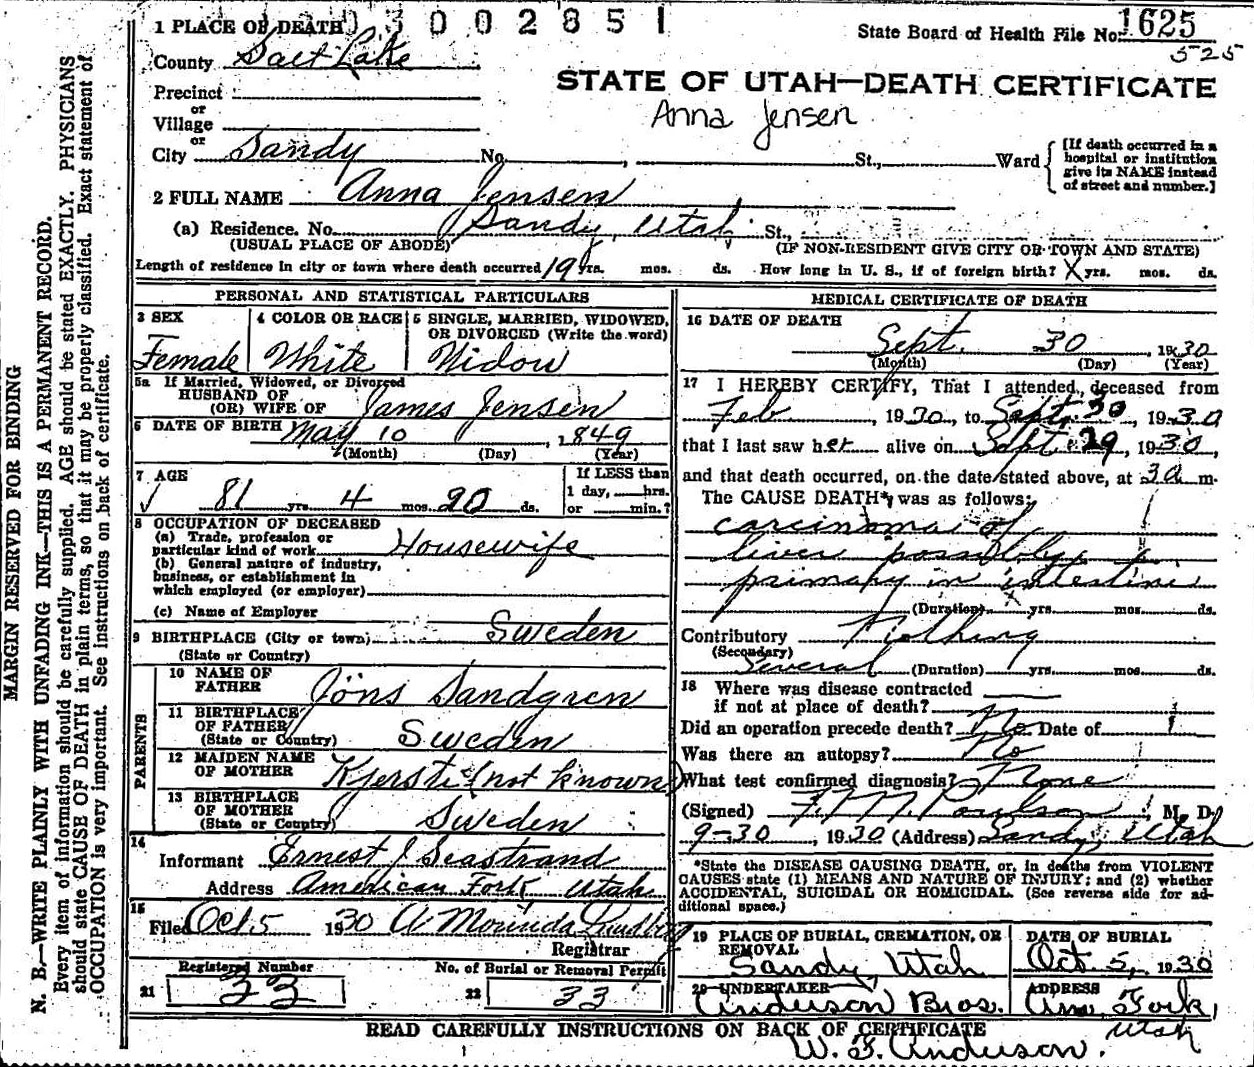 3002851
1 PLACE OF DEATH
State Board of Health File No. 1625
525
County Salt Lake
STATE OF UTAH—DEATH CERTIFICATE
Precinct
or
Village
Anna Jensen
or
City Sandy No. , St., Ward
[If death occurred in a hospital or institution give its NAME instead of street and number.]
2 FULL NAME Anna Jensen
(a) Residence. No. Sandy, Utah St.,
(USUAL PLACE OF ABODE) (IF NON-RESIDENT GIVE CITY OR TOWN AND STATE)
Length of residence in city or town where death occurred 19 yrs. mos. ds. How long in U. S., if of foreign birth? X yrs. mos. ds.
PERSONAL AND STATISTICAL PARTICULARS
3 SEX
Female
4 COLOR OR RACE
White
5 SINGLE, MARRIED, WIDOWED,
OR DIVORCED (Write the word)
Widow
5a If Married, Widowed, or Divorced
HUSBAND OF
(OR) WIFE OF James Jensen
6 DATE OF BIRTH May 10, 1849
(Month) (Day) (Year)
7 AGE
81 yrs. 4 mos. 20 ds.
If LESS than
1 day, hrs.
or min.?
8 OCCUPATION OF DECEASED
(a) Trade, profession or
particular kind of work Housewife
(b) General nature of industry,
business, or establishment in
which employed (or employer)
(c) Name of Employer
9 BIRTHPLACE (City or town) Sweden
(State or Country)
PARENTS
10 NAME OF
FATHER Jöns Sandgren
11 BIRTHPLACE
OF FATHER Sweden
(State or Country)
12 MAIDEN NAME
OF MOTHER Kjersti (not known)
13 BIRTHPLACE
OF MOTHER Sweden
(State or Country)
14
Informant Ernest J Seastrand
Address American Fork Utah
15
Filed Oct 5 1930 A Morinda Lundberg
Registrar
Registered Number
21 33
No. of Burial or Removal Permit
22 33
MEDICAL CERTIFICATE OF DEATH
16 DATE OF DEATH
Sept. 30, 1930
(Month) (Day) (Year)
17 I HEREBY CERTIFY, That I attended deceased from
Feb, 1930, to Sept. 30, 1930
that I last saw her alive on Sept 29, 1930,
and that death occurred, on the date stated above, at 3 a m.
The CAUSE DEATH* was as follows:
carcinoma of
liver possibly
primary in intestine
(Duration) yrs. mos. ds.
Contributory Nothing
(Secondary)
Several (Duration) yrs. mos. ds.
18 Where was disease contracted
if not at place of death?
Did an operation precede death? No Date of
Was there an autopsy? No
What test confirmed diagnosis? None
(Signed) Poulson, M. D.
9-30, 1930 (Address) Sandy, Utah
*State the DISEASE CAUSING DEATH, or, in deaths from VIOLENT
CAUSES state (1) MEANS AND NATURE OF INJURY; and (2) whether
ACCIDENTAL, SUICIDAL OR HOMICIDAL. (See reverse side for ad-
ditional space.)
19 PLACE OF BURIAL, CREMATION, OR
REMOVAL
Sandy, Utah
DATE OF BURIAL
Oct. 5, 1930
20 UNDERTAKER
Anderson Bros.
ADDRESS
Am. Fork,
Utah
READ CAREFULLY INSTRUCTIONS ON BACK OF CERTIFICATE
W. F. Anderson.
MARGIN RESERVED FOR BINDING
N. B.—WRITE PLAINLY WITH UNFADING INK—THIS IS A PERMANENT RECORD.
Every item of information should be carefully supplied. AGE should be stated EXACTLY. PHYSICIANS
should state CAUSE OF DEATH in plain terms, so that it may be properly classified. Exact statement of
OCCUPATION is very important. See instructions on back of certificate.